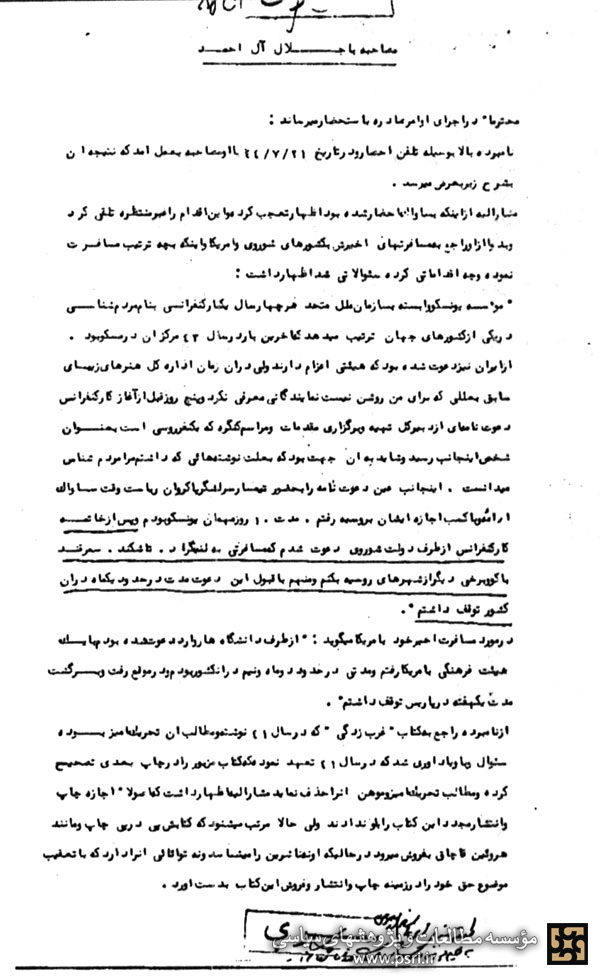 مصاحبه با جـــلال آل احمـد
محترما" در اجرای اوامر صادره باستحضار میرساند :
نامبرده بالا بوسیله تلفن احضار و در تاریخ ۴۴/۷/۲۱ با او مصاحبه بعمل امد که نتیجه ان
بشرح زیر بعرض میرسد .
مشارالیه از اینکه بساواک احضار شده بود اظهار تعجب کرد و این اقدام را غیر منتظره تلقی کرد
وبدوا از او راجع به مسافرتهای اخیرش بکشورهای شوروی و امریکا و اینکه بچه ترتیب مسافرت
نموده و چه اقداماتی کرده سئوالاتی شد اظهار داشت :
" موسسه یونسکو وابسته بسازمان ملل متحد هر چهار سال یک کنفرانسی بنام مردم شناسی
در یکی از کشورهای جهان ترتیب میدهد که اخرین بار در سال ۴۳ مرکز ان در مسکو بود .
از ایران نیز دعوت شده بود که هیئتی اعزام دارند ولی در ان زمان اداره کل هنرهای زیبای
سابق بعللی که برای من روشن نیست نمایندگانی معرفی نکرد و پنج روز قبل از آغاز کار کنفرانس
دعوت نامه‌ای از دبیر کل تهیه و برگزاری مقدمات و مراسم کنگره که یکنفر روسی است بعنـــوان
شخص اینجانب رسید و شاید به ان جهت بود که بعلت نوشته‌هائی که داشتم مرا مردم شناس
میدانست . اینجانب عین دعوت نامه را بحضور تیمسار سرلشگر پاکروان ریاست وقت ساواک
ارائه و با کسب اجازه ایشان بروسیه رفتم . مدت ۱۰ روز مهمان یونسکو بودم و پس از خاتمـــه
کار کنفرانس از طرف دولت شوروی دعوت شدم که مسافرتی به لنینگراد . تاشکند . سمرقنـد
باکو و برخی دیگر از شهرهای روسیه بکنم و منهم با قبول این دعوت مدت در حدود یکماه در ان
کشور توقف داشتم ".
در مورد مسافرت اخیر خود بامریکا میگوید : " از طرف دانشگاه هاروارد دعوت شده بودم با یک
هیئت فرهنگی بامریکا رفتم و مدتی در حدود دو ماه ونیم در انکشور بودم و در موقع رفت و برگشت
مدت یکهفته در پاریس توقف داشتم" .
از نامبرده راجع به کتاب " غرب زدگی " که در سال ۴۱ نوشته و مطالب ان تحریک امیز بـــوده
سئوال و باو یاد اوری شد که در سال ۴۱ تعهد نموده که کتاب مزبور را در چاپ بعدی تصحیح
کرده و مطالب تحریک امیز و موهن انرا حذف نماید مشارالیه اظهار داشت که اصولا" اجازه چاپ
و انتشار مجدد این کتاب را باو ندادند ولی حالا مرتب میشنود که کتابش پی در پی چاپ و مانند
هروئین قاچاق بفروش میرود در حالیکه او نه ناشرین را میشناسد و نه توانائی انرا دارد که با تعقیب
موضوع حق خود را در زمینه چاپ و انتشار و فروش این کتاب بدست اورد .
مؤسسه مطالعات و پژوهشهای سیاسی
www.psri.ir